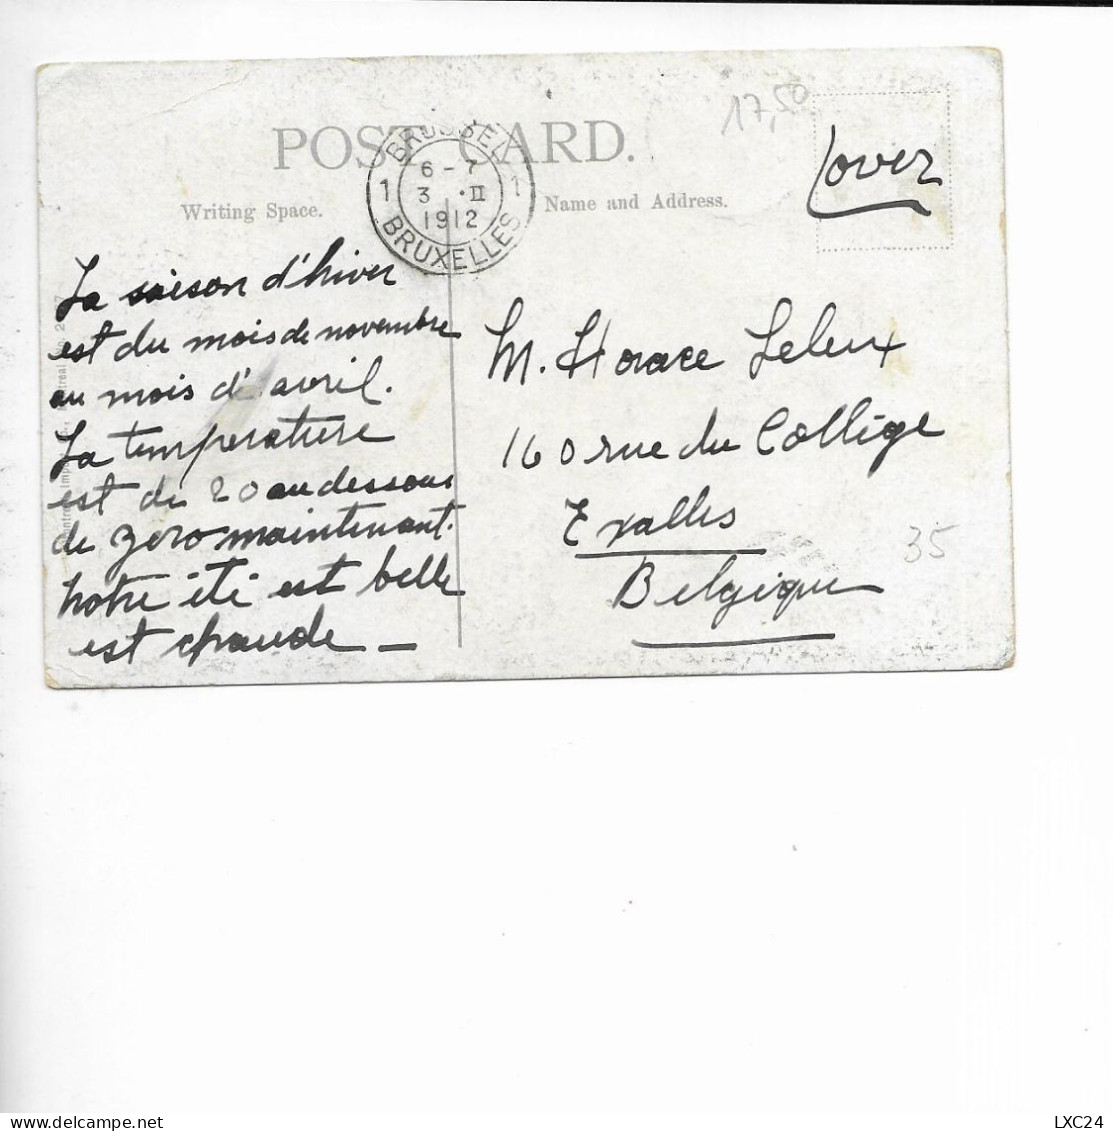 POST CARD.
17,50
over
BRUSSEL
6-7
1 3 II 1
1912
BRUXELLES
Writing Space.
Name and Address.
La saison d'hiver
est du mois de novembre
au mois d'avril.
La temperature
est de 20 au dessous
de zero maintenant.
notre été est belle
est chaude —
M. Horace Leleux
160 rue du Collige
Exalles
Belgique
35
LXC24